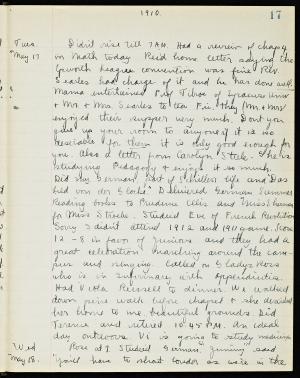 1910.
17
Tues. Didn't rise till 7 A.M. Had a review of chap. 4
May 17 in Math today Recd home letter saying the
Epworth League convention was fine Rev.
Searles had charge of it and he has done well.
Mama entertained Prof. of Syracuse Univ
+ Mr. + Mrs. Searles to tea Fri. They (Mr. + Mrs)
enjoyed their supper very much. Don't you
give up your room to anyone if it is so
desirable for them it is only good enough for
you. Also a letter from Carolyn Steele. She is
studying Pedagogy + enjoys it much.
Did my German, part of Schiller's life and Das
Lied von der Glocke Delivered German Summer
Reading books to Prudence Ellis and Miss
for Miss Streibe. Studied Eve of French Revolution
Sorry I didn't attend 1912 and 1911 game. Score
12 - 8 in favor of Juniors and they had a
great celebration marching around the cam-
pus and singing. Called on Gladys Ross
who is in infirmary with appendicitis.
Had Viola Russell to dinner. We walked
down pine walk before chapel + she decided
her home to me beautiful grounds. Did
Terence and retired 10.45 P.M. An ideal
day outdoors. Vi is going to study medicine
Wed Rose at 7 Studied German, "Jimmy" said
May 18. "you'll have to shout louder as we're in the